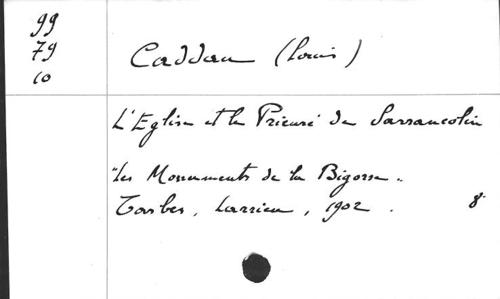 99
79
10
Caddau (Louis)
L'Eglise et le Prieuré de Sarrancolin
"Les Monuments de la Bigorre"
Tarbes, Larrieu, 1902. 8°